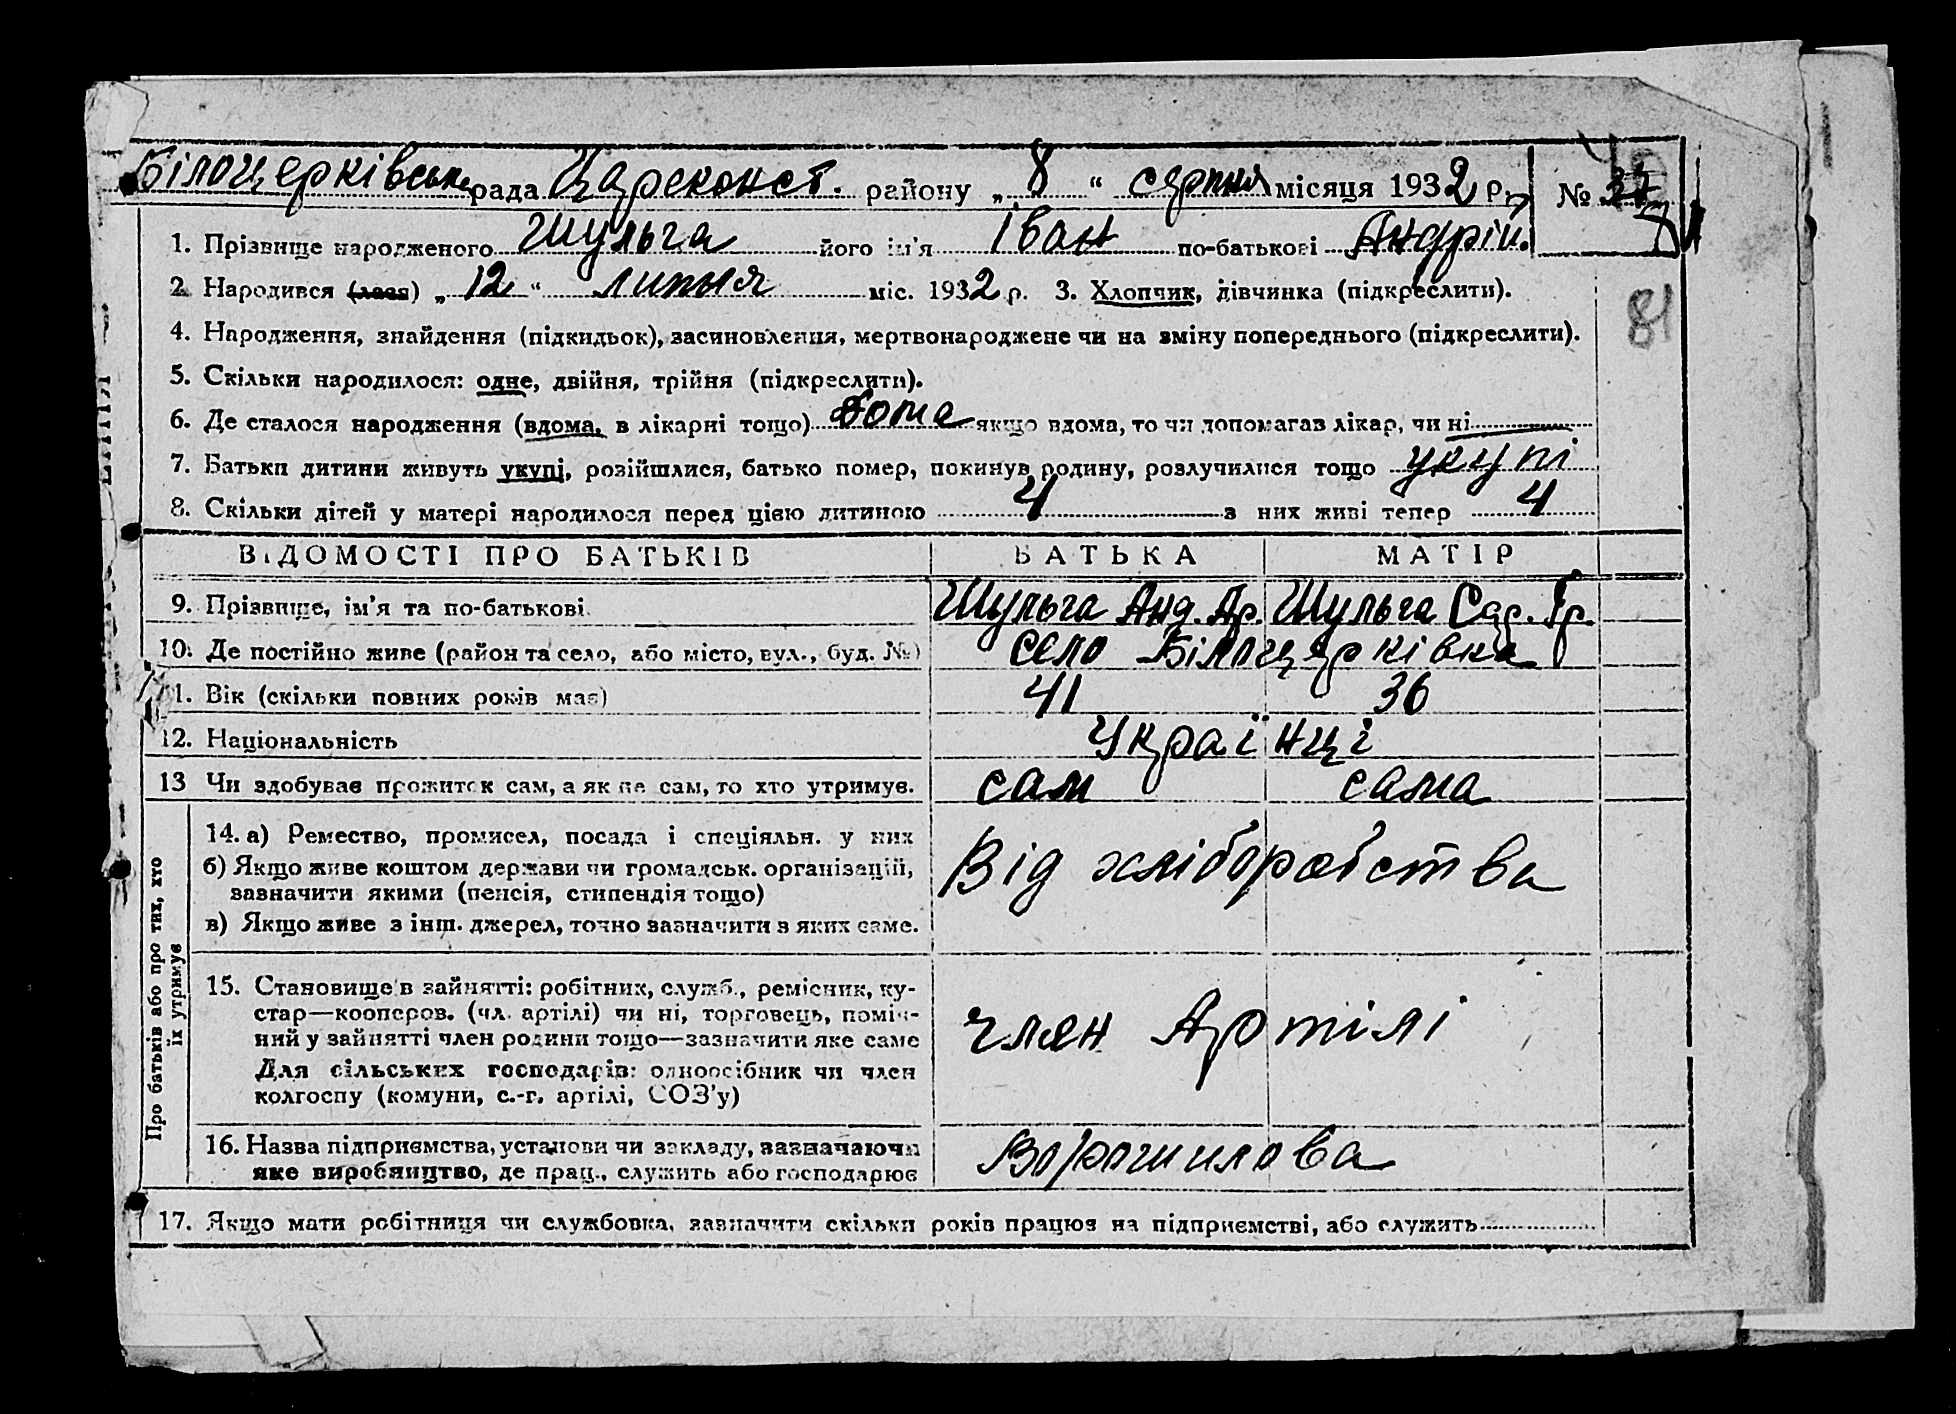 Білоцерківська рада Цареконст. району „ 8 “ серпня місяця 1932 р. №
1. Прізвище народженого Шульга його ім'я Іван по-батькові Андрій.
2. Народився (лася) „ 12 “ липня міс. 1932 р. 3. Хлопчик, дівчинка (підкреслити).
81
4. Народження, знайдення (підкидьок), засиновлення, мертвонароджене чи на зміну попереднього (підкреслити).
5. Скільки народилося: одне, двійня, трійня (підкреслити).
6. Де сталося народження (вдома, в лікарні тощо) дома якщо вдома, то чи допомагав лікар, чи ні
7. Батьки дитини живуть укупі, розійшлися, батько помер, покинув родину, розлучилися тощо укупі
8. Скільки дітей у матері народилося перед цією дитиною 4 з них живі тепер 4
ВІДОМОСТІ ПРО БАТЬКІВ БАТЬКА МАТІР
9. Прізвище, ім'я та по-батькові Шульга Анд. Ар. Шульга Сар. Гр.
10. Де постійно живе (район та село, або місто, вул., буд. №) село Білоцерківка
11. Вік (скільки повних років має) 41 36
12. Національність Українці
13 Чи здобуває прожиток сам, а як не сам, то хто утримує. сам сама
Про батьків або про тих, хто їх утримує
14. а) Ремество, промисел, посада і спеціяльн. у них
б) Якщо живе коштом держави чи громадськ. організацій,
зазначити якими (пенсія, стипендія тощо)
в) Якщо живе з інш. джерел, точно зазначити з яких саме.
Від хліборобства
15. Становище в зайнятті: робітник, служб., ремісник, ку-
стар—кооперов. (чл. артілі) чи ні, торговець, поміч-
ний у зайнятті член родини тощо—зазначити яке саме
Для сільських господарів: одноосібник чи член
колгоспу (комуни, с.-г. артілі, СОЗ'у)
член Артілі
16. Назва підприємства, установи чи закладу, зазначаючи
яке виробництво, де прац., служить або господарює
Ворошилова
17. Якщо мати робітниця чи службовка, зазначити скільки років працює на підприємстві, або служить